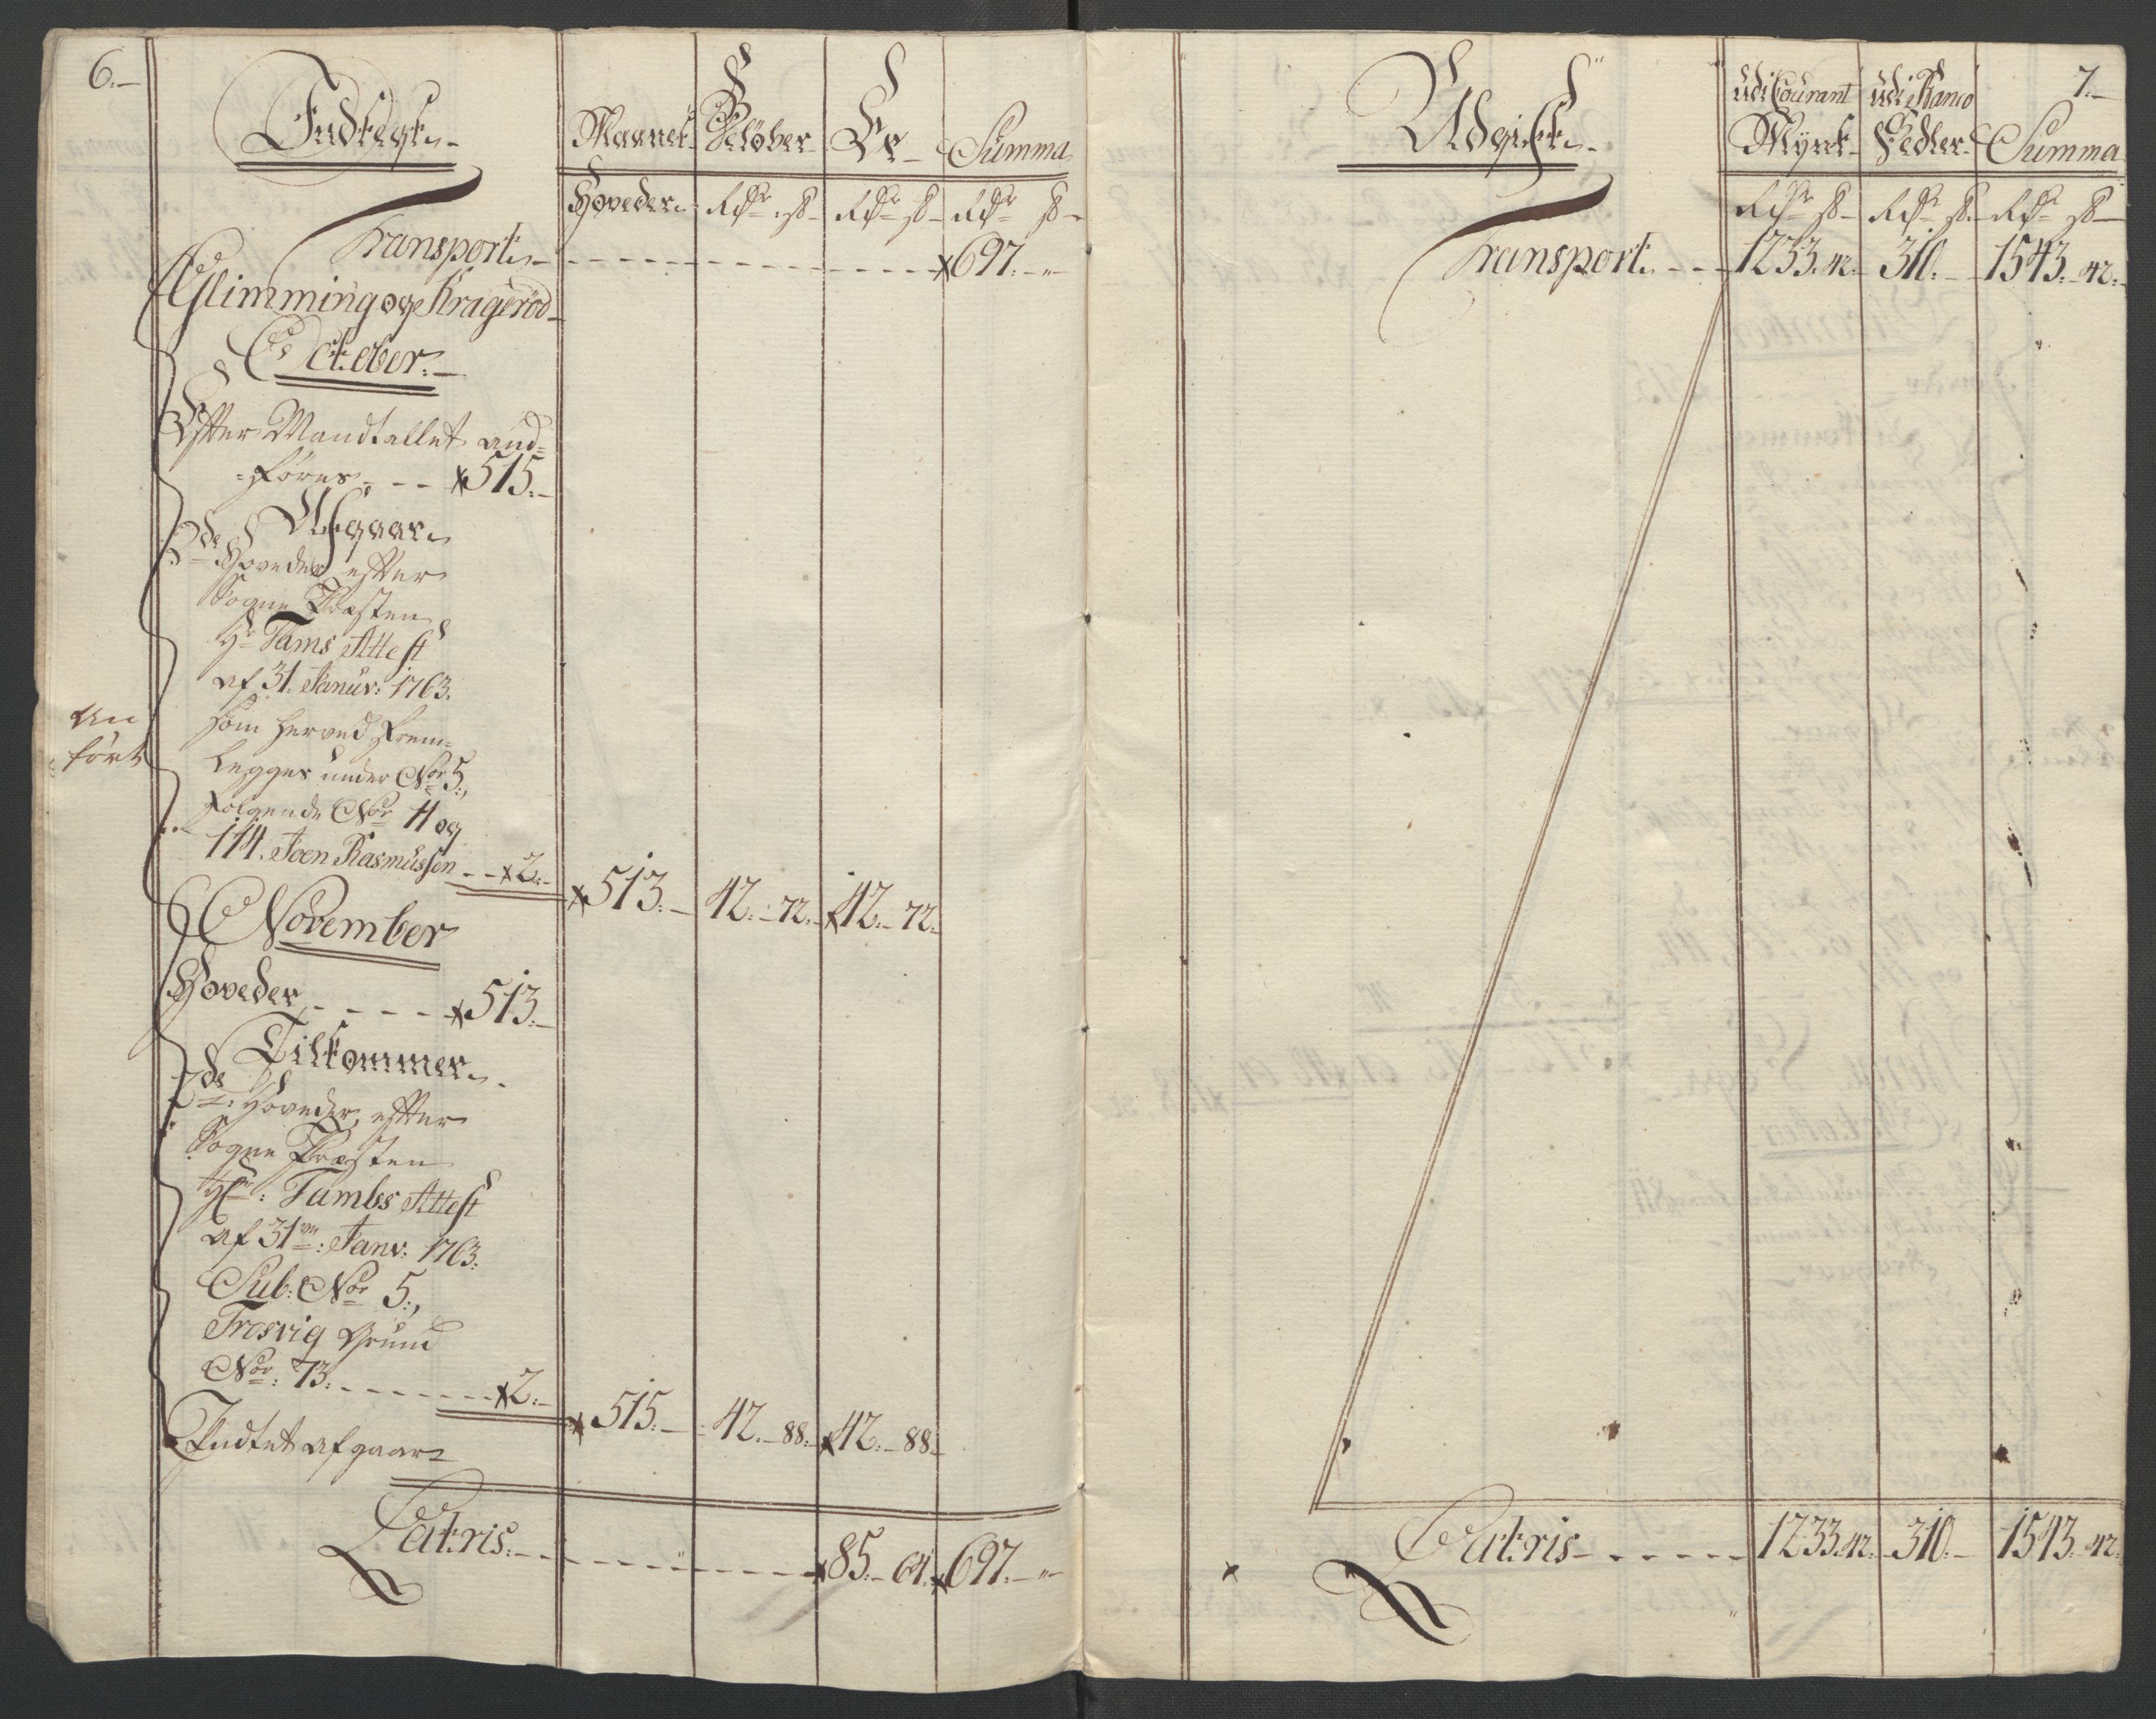 6.
Indtegt
Maanet Beløber Er Summa
Hoveder Rdr ß Rdr ß Rdr ß
Transport 697.
Glimming og Kragerød
October.
Efter Mandtallet and=
=føres 515.
Afgaar
2de Hoveder efter
Sogne Præsten
Hr Tams Attest
af 31. Januar: 1763.
som herved frem=
legges under Nor 5.,
følgende Nor 11 og
114. Joen Rasmussen 2. 513. 42. 72. 42. 72.
An
ført
November
Hoveder 513.
Tilkommer
2de Hoveder, efter
Sogne Præsten
Hr: Tambs Attest
af 31te: Janv: 1763.
Sub: Nor 5.,
Trosvig Grund
Nor: 73. 2. 515. 42. 88. 42. 88.
Intet afgaar
Latris 85. 64. 697.
7.
Udgift
udi Courant udi Banco
Mynt Sedler Summa
Rdr ß Rdr ß Rdr ß
Transport 1233. 42. 310. 1543. 42.
Latris 1233. 42. 310. 1543. 42.